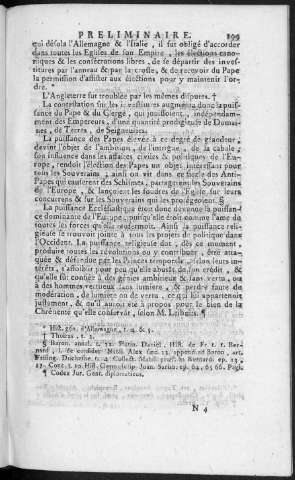 PRELIMINAIRE. 199
qui désola l'Allemagne & l'Italie, il fut obligé d'accorder
dans toutes les Eglises de son Empire, les élections cano-
niques & les consécrations libres, de se départir des inves-
titures par l'anneau & par la crosse, & de recevoir du Pape
la permission d'assister aux élections pour y maintenir l'or-
dre. *
L'Angleterre fut troublée par les mêmes disputes. †
La contestation sur les investitures augmenta donc la puis-
sance du Pape & du Clergé, qui jouissoient, indépendam-
ment des Empereurs, d'une quantité prodigieuse de Domai-
nes, de Terres, de Seigneuries.
La puissance des Papes élevée à ce degré de grandeur,
devint l'objet de l'ambition, de l'intrigue, de la cabale;
son influence dans les affaires civiles & politiques de l'Eu-
rope, rendoit l'élection des Papes un objet intéressant pour
tous les Souverains; ainsi on vit dans ce siecle des Anti-
Papes qui causerent des Schismes, partagerent les Souverains
de l'Europe, & lançoient les foudres de l'Eglise sur leurs
concurrens & sur les Souverains qui les protégeoient. §
La puissance Ecclésiastique étoit donc devenue la puissan-
ce dominante de l'Europe, puisqu'elle étroit comme l'ame de
toutes les forces qui la renfermoit. Ainsi la puissance reli-
gieuse se trouvoit jointe à tous les projets de politique dans
l'Occident. La puissance religieuse dut, dès ce moment,
produire toutes les révolutions ou y contribuer, être atta-
quée & défendue par les Princes temporels, selon leurs inté-
rêts, s'affoiblir pour peu qu'elle abusât de son crédit, &
qu'elle fût confiée à des génies ambitieux & sans vertu, ou
à des hommes vertueux sans lumiere, & perdre faute de
modération, de lumiere ou de vertu, ce qui lui appartenoit
justement, & qu'il auroit été à propos pour le bien de la
Chrétienté qu'elle conservât, selon M. Leibnits. ¶
* Hist. &c. d'Allemagne, t. 4. & 5.
† Thoiras, t. 2.
§ Baron. annal. t. 12. Platin. Daniel, Hist. de Fr. t. 1. Ber-
Codex Jur. Gent. diplomaticus.
N 4